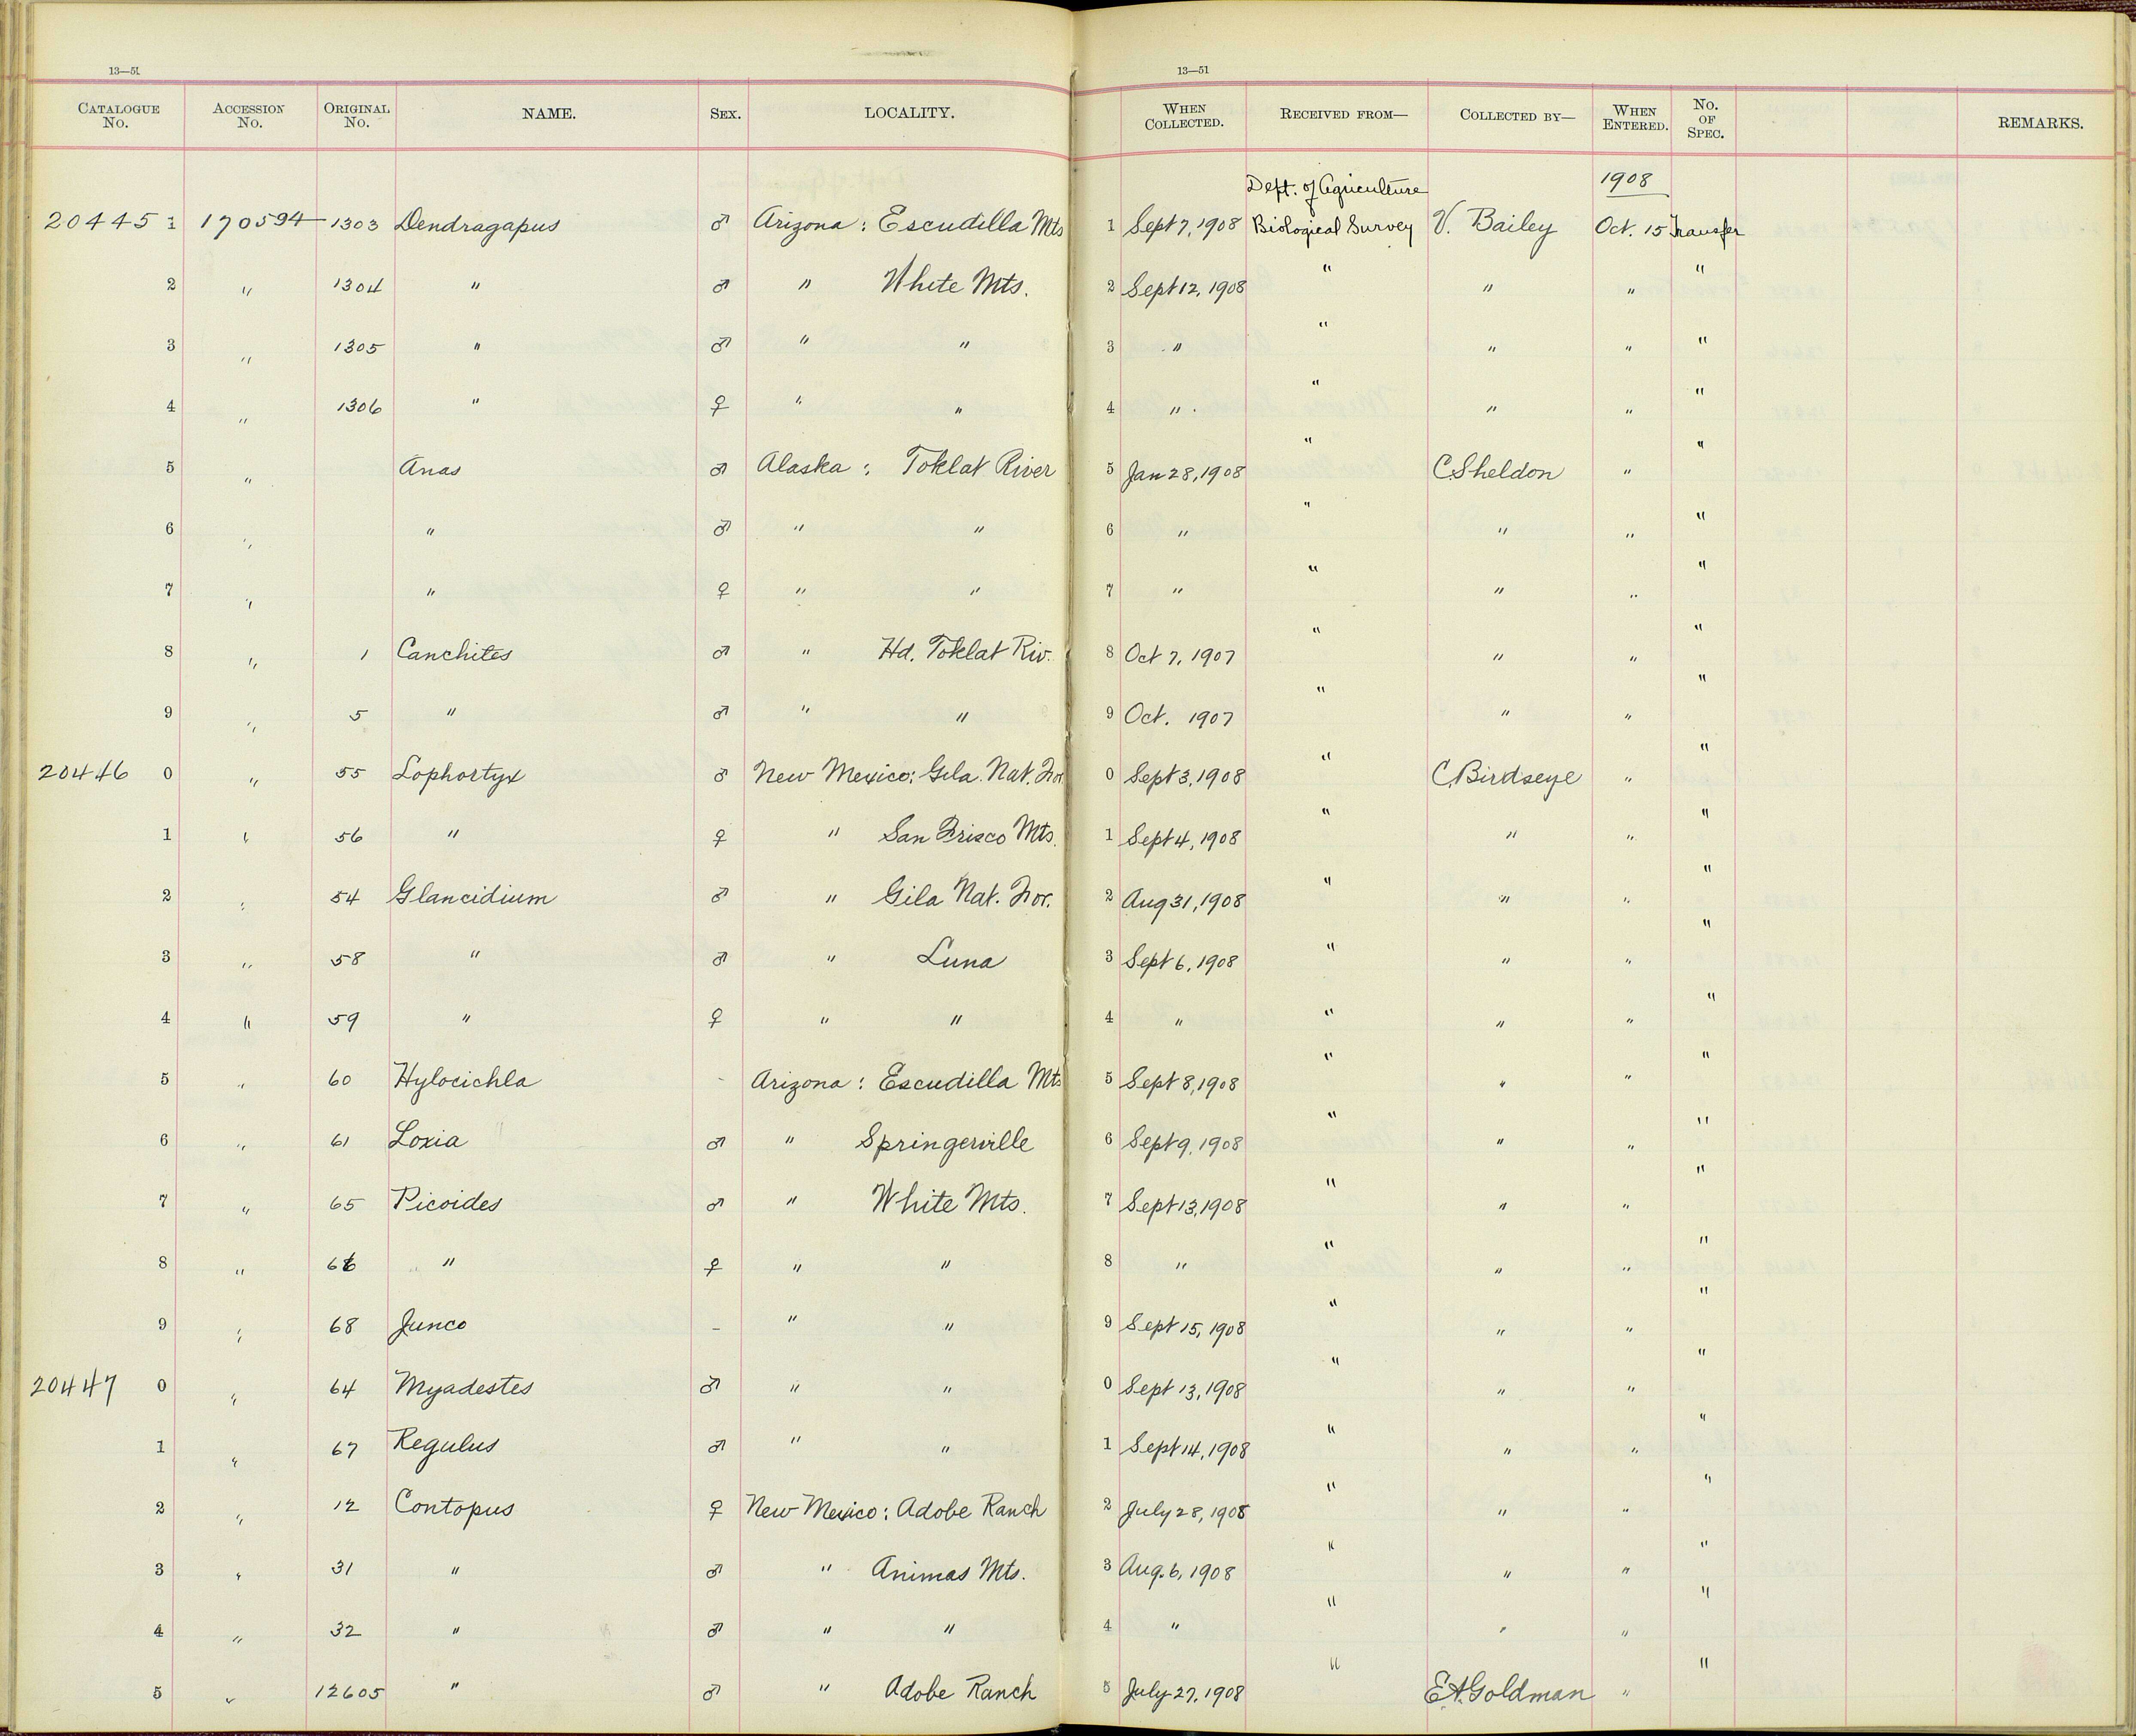 13—51 13—51
CATALOGUE No. ACCESSION No. ORIGINAL No. NAME. SEX. LOCALITY. WHEN COLLECTED. RECEIVED FROM— COLLECTED BY— WHEN ENTERED. No. OF SPEC. REMARKS.
Dept. of Agriculture 1908
20445 1 170594 1303 Dendragapus ♂ Arizona : Escudilla Mts 1 Sept 7, 1908 Biological Survey V. Bailey Oct. 15 Transfer
2 " 1304 " ♂ " White Mts. 2 Sept 12, 1908 " " " "
3 " 1305 " ♂ " " 3 " " " " "
4 " 1306 " ♀ " " 4 " " " " "
5 " Anas ♂ Alaska : Toklat River 5 Jan 28, 1908 " C. Sheldon " "
6 " " ♂ " " 6 " " " " "
7 " " ♀ " " 7 " " " " "
8 " 1 Canchites ♂ " Hd. Toklat Riv. 8 Oct 7, 1907 " " " "
9 " 5 " ♂ " " 9 Oct. 1907 " " " "
20446 0 " 55 Lophortyx ♂ New Mexico: Gila. Nat. For 0 Sept 3, 1908 " C. Birdseye " "
1 " 56 " ♀ " San Frisco Mts. 1 Sept 4, 1908 " " " "
2 " 54 Glancidium ♂ " Gila Nat. For. 2 Aug 31, 1908 " " " "
3 " 58 " ♂ " Luna 3 Sept 6, 1908 " " " "
4 " 59 " ♀ " " 4 " " " " "
5 " 60 Hylocichla - Arizona : Escudilla Mts 5 Sept 8, 1908 " " " "
6 " 61 Loxia ♂ " Springerville 6 Sept 9, 1908 " " " "
7 " 65 Picoides ♂ " White Mts. 7 Sept 13, 1908 " " " "
8 " 66 " ♀ " " 8 " " " " "
9 " 68 Junco - " " 9 Sept 15, 1908 " " " "
20447 0 " 64 Myadestes ♂ " " 0 Sept 13, 1908 " " " "
1 " 67 Regulus ♂ " " 1 Sept 14, 1908 " " " "
2 " 12 Contopus ♀ New Mexico : Adobe Ranch 2 July 28, 1908 " " " "
3 " 31 " ♂ " Animas Mts. 3 Aug. 6, 1908 " " " "
4 " 32 " ♂ " " 4 " " " " "
5 " 12605 " ♂ " Adobe Ranch 5 July 27, 1908 " E.A. Goldman " "